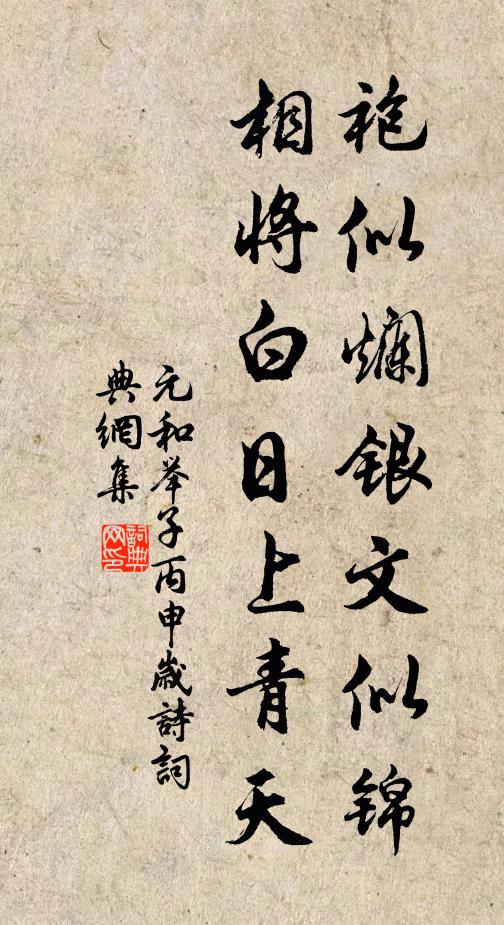 袍似爛銀文似錦
相將白日上青天
元和举子丙申歲詩詞
典網集
詞典网印